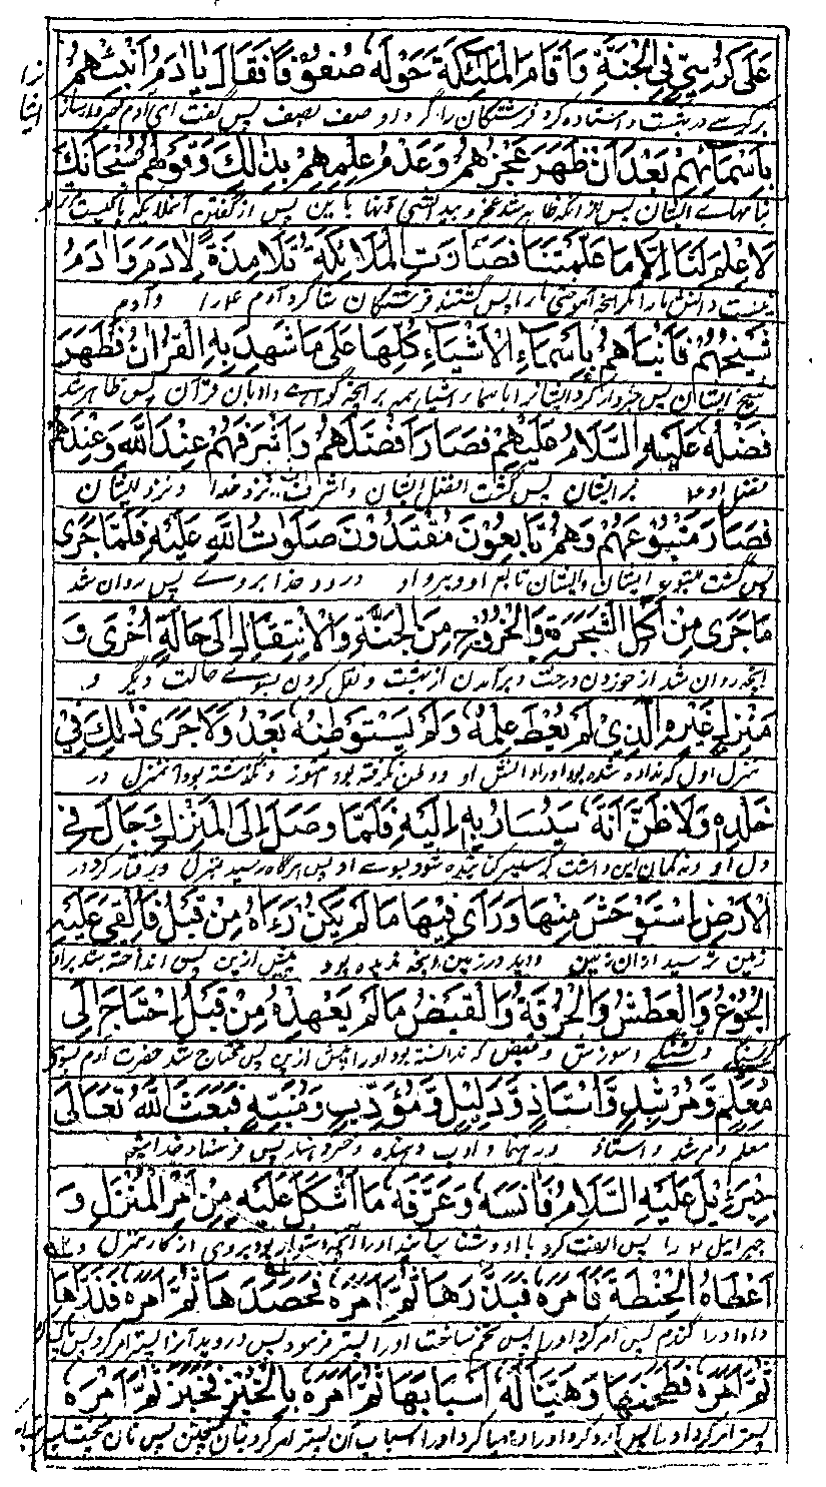 عَلٰى كُرْسِيٍّ فِي الْجَنَّةِ وَاَقَامَ الْمَلٰٓئِكَةَ حَوْلَهٗ صُفُوْفًا فَقَالَ يٰاٰدَمُ اَنْبِئْهُمْ
بر کرسے در بهشت و استاده کرد فرشتگان را گرد او صف بصف پس گفت ای آدم خبردار ساز
بِاَسْمَآئِهِمْ بَعْدَ اَنْ ظَهَرَ عَجْزُهُمْ وَعَدَمُ عِلْمِهِمْ بِذٰلِكَ وَقَوْلِهِمْ سُبْحَانَكَ
بنامهاے ایشان پس از انکه ظاهر شد عجز و بید انشی آنها باین پس از گفتن
لَا عِلْمَ لَنَا اِلَّا مَا عَلَّمْتَنَا فَصَارَتِ الْمَلَائِكَةُ تَلَامِذَةً لِاٰدَمَ وَاٰدَمُ
نیست دانش مارا مگر انچه آموختی مارا پس گشتند فرشتگان شاگرد آدم ع را و آدم
شَيْخُهُمْ فَاَنْبَاَهُمْ بِاَسْمَآءِ الْاَشْيَآءِ كُلِّهَا عَلٰى مَا شَهِدَ بِهِ الْقُرْاٰنُ فَظَهَرَ
شیخ ایشان پس خبردار کرد ایشانرا باسماء اشیا همه بر انچه گواهے داد بان قرآن پس ظاهر شد
فَضْلُهٗ عَلَيْهِ السَّلَامُ عَلَيْهِمْ فَصَارَ اَفْضَلَهُمْ وَاَشْرَفَهُمْ عِنْدَ اللّٰهِ وَعِنْدَهُمْ
فضل او ع بر ایشان پس گشت افضل ایشان و اشرف نزد خدا و نزد ایشان
فَصَارَ مَتْبُوْعَهُمْ وَهُمْ تَابِعُوْنَ مُقْتَدُوْنَ صَلَوٰتُ اللّٰهِ عَلَيْهِ فَلَمَّا جَرٰى
پس گشت متبوع ایشان و ایشان تابع او و پیرو او درود خدا بر وے پس روان شد
مَا جَرٰى مِنْ اَكْلِ الشَّجَرَةِ وَالْخُرُوْجِ مِنَ الْجَنَّةِ وَالْاِنْتِقَالِ اِلٰى حَالَةٍ اُخْرٰى وَ
انچه روان شد از خوردن درخت و برآمدن از بهشت و نقل کردن بسوے حالت دیگر و
مَنْزِلٍ غَيْرِهِ الَّذِيْ لَمْ يُعْطَ عِلْمَهٗ وَلَمْ يَسْتَوْطِنْهُ بَعْدُ وَلَا جَرٰى ذٰلِكَ فِيْ
منزل اول که نداده شده بود اورا دانش او و وطن نگرفته بود هنوز و نگذشته بود آنمنزل در
خَلَدِهٖ وَلَا ظَنَّ اَنَّهٗ سَيُسَارُ بِهٖ اِلَيْهِ فَلَمَّا وَصَلَ اِلَى الْمَنْزِلِ وَجَالَ فِي
دل او و نه گمان این داشت که سیر کنانیده شود بسوے او پس هرگاه رسید بمنزل و رفتار کرد در
الْاَرْضِ اِسْتَوْحَشَ مِنْهَا وَرَاٰى فِيْهَا مَا لَمْ يَكُنْ رَءَاهُ مِنْ قَبْلُ فَاُلْقِيَ عَلَيْهِ
زمین ترسید از ان زمین و دید در زمین انچه ندیده بود پیش ازین پس انداخته شد براو
الْجُوْعُ وَالْعَطَشُ وَالْحُرْقَةُ وَالْقَبْضُ مَا لَمْ يَعْهَدْهُ مِنْ قَبْلُ اِحْتَاجَ اِلٰى
گرسنگے و تشنگے و سوزش و قبض که ندانسته بود اورا پیش ازین پس محتاج شد حضرت آدم بسوے
مُعَلِّمٍ وَمُرْشِدٍ وَاُسْتَاذٍ وَدَلِيْلٍ وَمُؤَدِّبٍ وَمُنَبِّهٍ فَبَعَثَ اللّٰهُ تَعَالٰى
معلم و مرشد و استاد و رهنما و ادب دهنده و خبردار پس فرستاد خدایتعالے
جِبْرَءِيْلَ عَلَيْهِ السَّلَامُ فَاٰنَسَهٗ وَعَرَّفَهٗ مَا اَشْكَلَ عَلَيْهِ مِنْ اَمْرِ الْمَنْزِلِ وَ
جبرائیل ع را پس الفت کرد با او و شناسانید اورا آنچه دشوار بود بروی از کار منزل و
اَعْطَاهُ الْحِنْطَةَ فَاَمَرَهٗ فَبَذَرَهَا ثُمَّ اَمَرَهٗ فَحَصَدَهَا ثُمَّ اَمَرَهٗ فَذَرَّهَا
داد اورا گندم پس امر کرد اورا پس تخم ساخت اورا پستر فرمود پس دروید آنرا پستر امر کرد پس
ثُمَّ اَمَرَهٗ فَطَحَنَهَا وَهَيَّأَ لَهٗ اَسْبَابَهَا ثُمَّ اَمَرَهٗ بِالْخَبْزِ فَخَبَزَ ثُمَّ اَمَرَهٗ
پستر امر کرد اورا پس آرد کرد اورا و مهیا کرد اورا اسباب آن پستر امر کرد بنان پختن پس نان